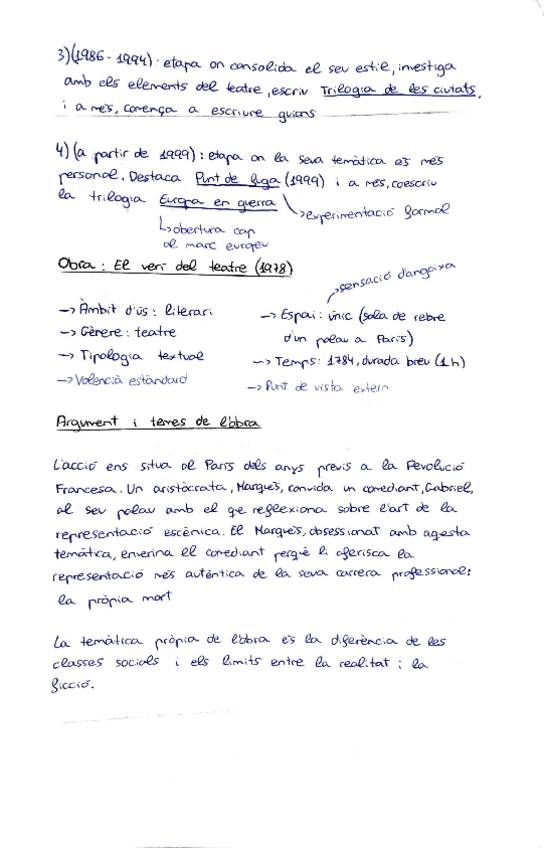 3)(1986-1994): etapa on consolida el seu estil, investiga
amb els elements del teatre, escriu Trilogia de les ciutats,
i a més, comença a escriure guions
4) (a partir de 1999): etapa on la seva temàtica és més
personal. Destaca Punt de fuga (1999) i a més, coescriu
la trilogia Europa en guerra
↳experimentació formal
↳obertura cap
al marc europeu
Obra: El verí del teatre (1978)
sensació d'angoixa
→ Àmbit d'ús: literari
→ Gènere: teatre
→ Tipologia textual
→ Valencià estàndard
→ Espai: únic (sala de rebre
d'un palau a París)
→ Temps: 1784, durada breu (1h)
→ Punt de vista extern
Argument i temes de l'obra
L'acció ens situa al París dels anys previs a la Revolució
Francesa. Un aristòcrata, Marqués, convida un comediant, Gabriel,
al seu palau amb el qe reflexiona sobre l'art de la
representació escènica. El Marqués, obsessionat amb aqesta
temàtica, enverina el comediant perquè li oferisca la
representació més autèntica de la seva carrera professional:
la pròpia mort
La temàtica pròpia de l'obra és la diferència de les
classes socials i els límits entre la realitat i la
ficció.